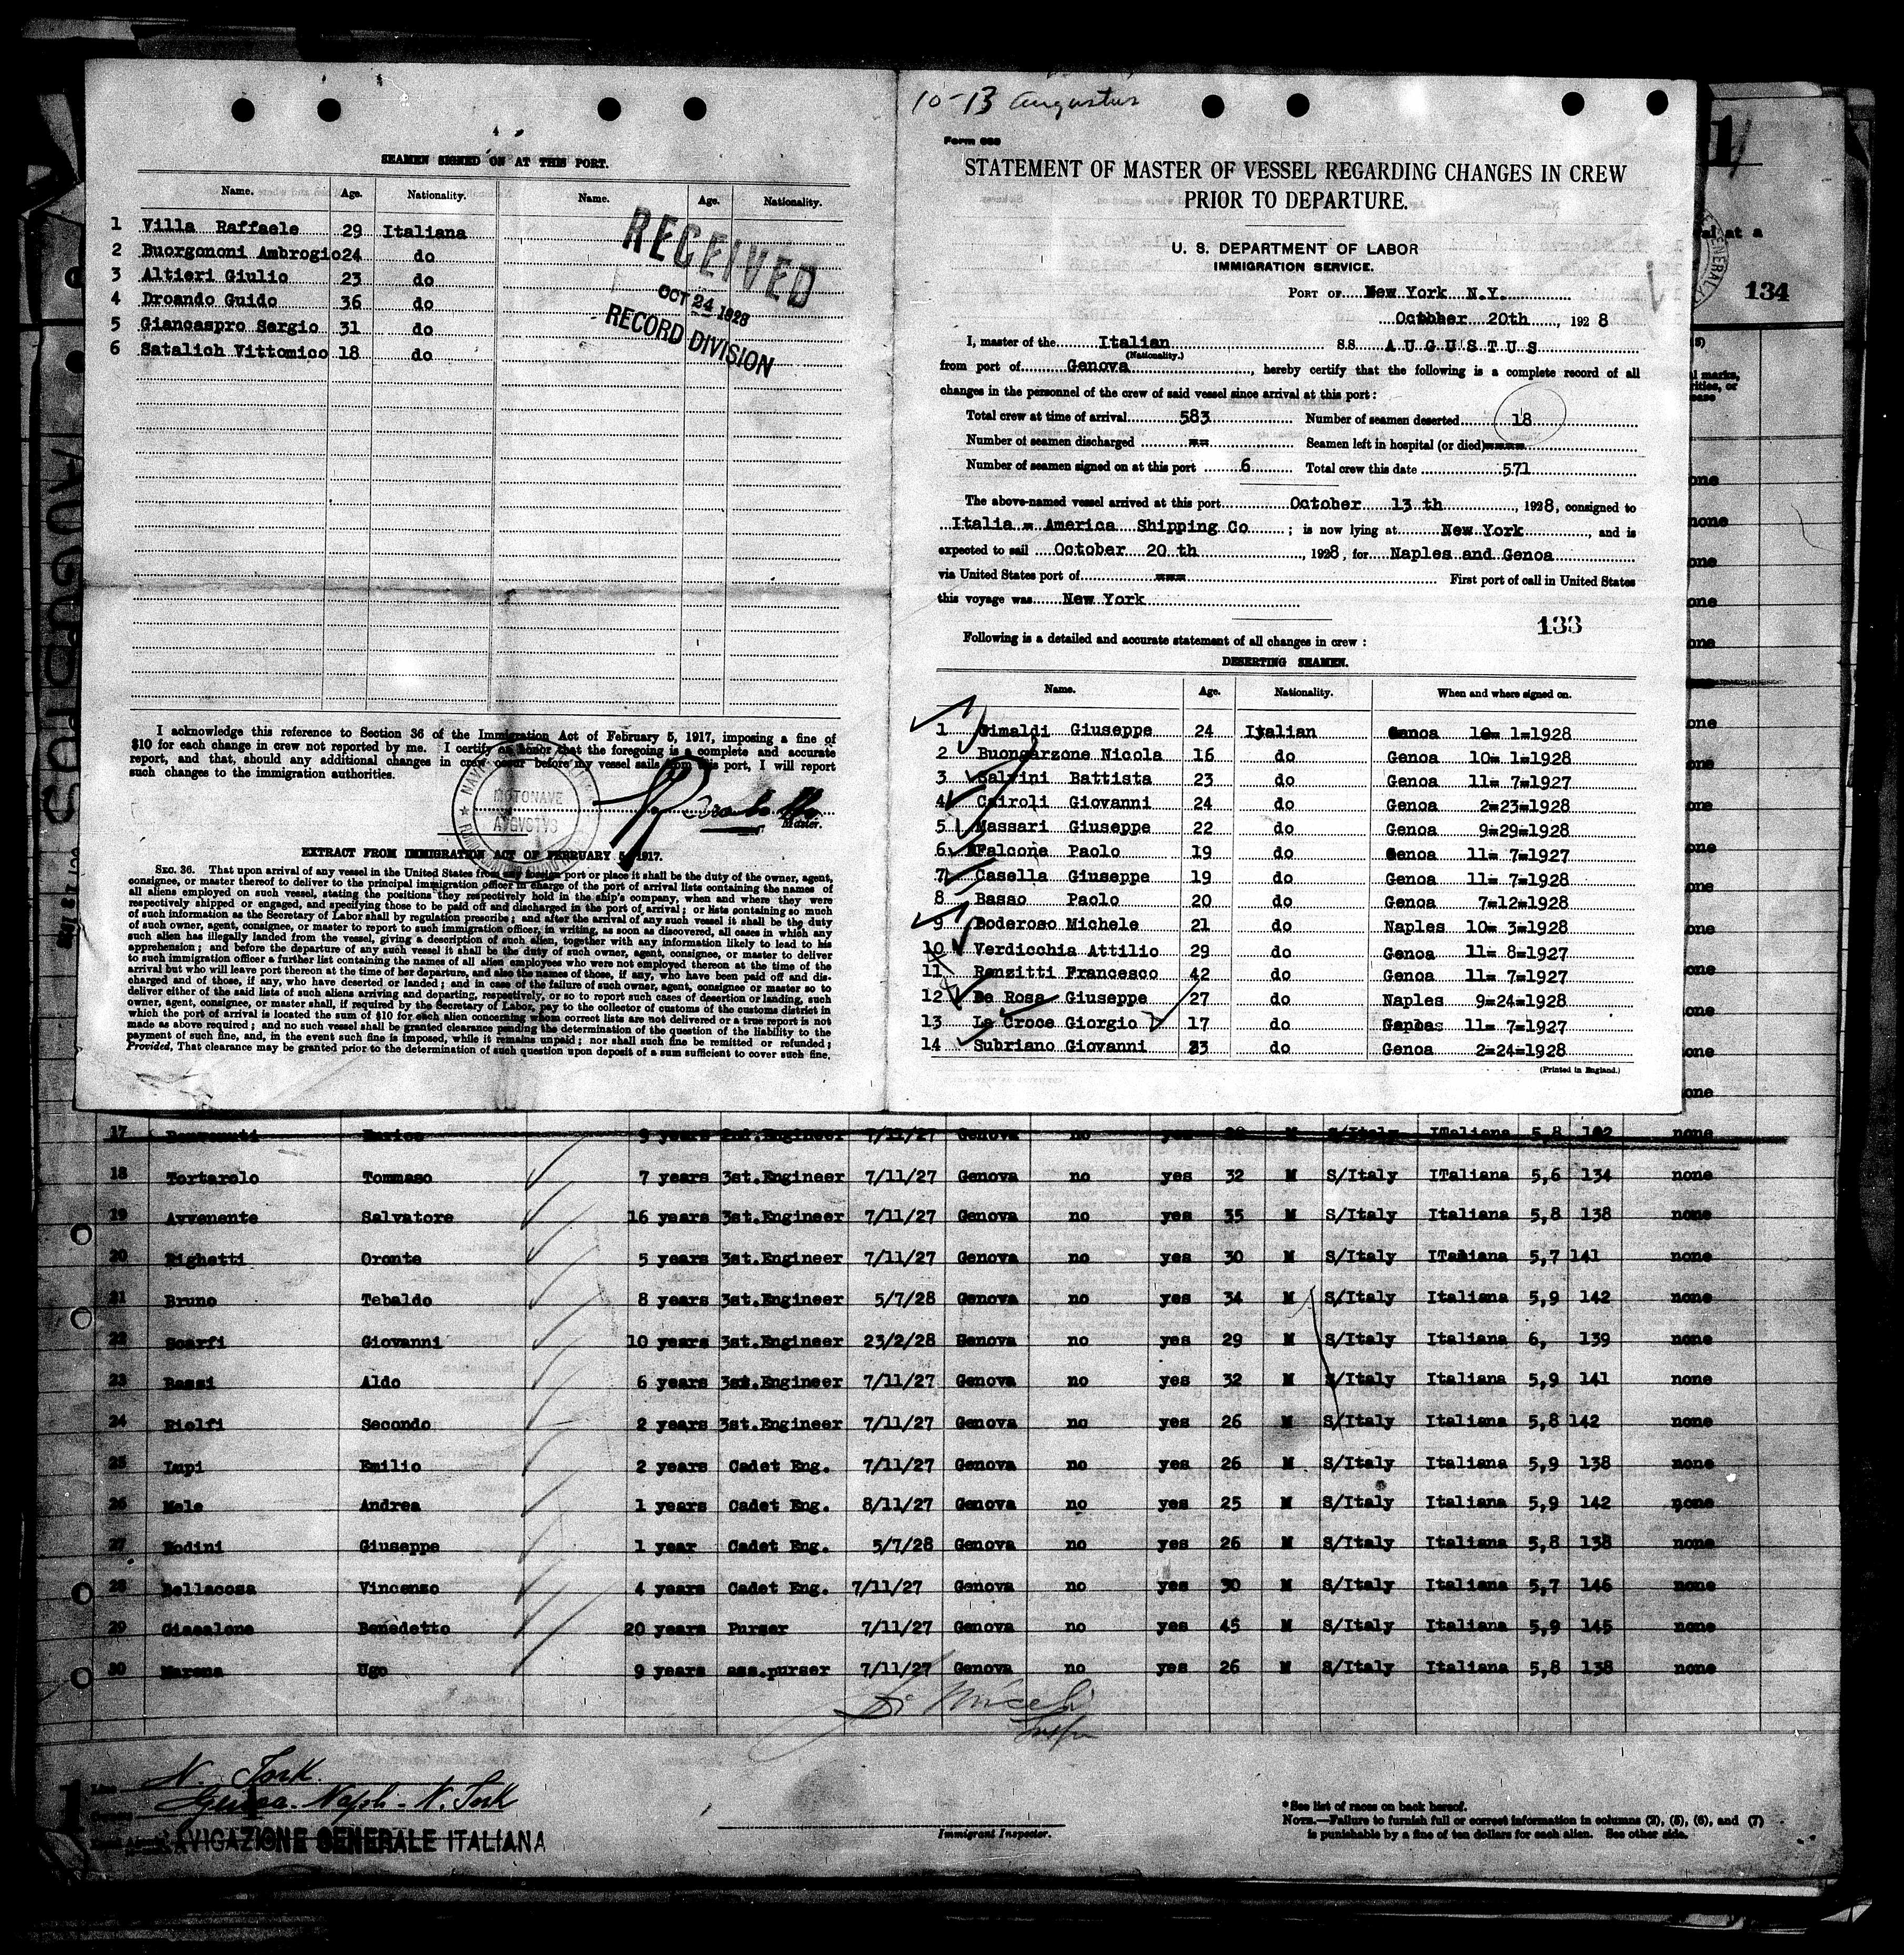 SEAMEN SIGNED ON AT THIS PORT.
Name. Age. Nationality. Name. Age. Nationality.
1 Villa Raffaele 29 Italiana
2 Buorgononi Ambrogio 24 do
3 Altieri Giulio 23 do
4 Droando Guido 36 do
5 Giancaspro Sergio 31 do
6 Satalich Vittomico 18 do
RECEIVED
OCT 24 1928
RECORD DIVISION
I acknowledge this reference to Section 36 of the Immigration Act of February 5, 1917, imposing a fine of
$10 for each change in crew not reported by me. I certify on honor that the foregoing is a complete and accurate
report, and that, should any additional changes in crew occur before my vessel sails from this port, I will report
such changes to the immigration authorities.
MOTONAVE
AVGVSTVS
Master.
EXTRACT FROM IMMIGRATION ACT OF FEBRUARY 5, 1917.
SEC. 36. That upon arrival of any vessel in the United States from any foreign port or place it shall be the duty of the owner, agent,
consignee, or master thereof to deliver to the principal immigration officer in charge of the port of arrival lists containing the names of
all aliens employed on such vessel, stating the positions they respectively hold in the ship's company, when and where they were
respectively shipped or engaged, and specifying those to be paid off and discharged in the port of arrival; or lists containing so much
of such information as the Secretary of Labor shall by regulation prescribe; and after the arrival of any such vessel it shall be the duty
of such owner, agent, consignee, or master to report to such immigration officer, in writing, as soon as discovered, all cases in which any
such alien has illegally landed from the vessel, giving a description of such alien, together with any information likely to lead to his
apprehension; and before the departure of any such vessel it shall be the duty of such owner, agent, consignee, or master to deliver
to such immigration officer a further list containing the names of all alien employees who were not employed thereon at the time of the
arrival but who will leave port thereon at the time of her departure, and also the names of those, if any, who have been paid off and dis-
charged and of those, if any, who have deserted or landed; and in case of the failure of such owner, agent, consignee or master so to
deliver either of the said lists of such aliens arriving and departing, respectively, or so to report such cases of desertion or landing, such
owner, agent, consignee, or master shall, if required by the Secretary of Labor, pay to the collector of customs of the customs district in
which the port of arrival is located the sum of $10 for each alien concerning whom correct lists are not delivered or a true report is not
made as above required; and no such vessel shall be granted clearance pending the determination of the question of the liability to the
payment of such fine, and, in the event such fine is imposed, while it remains unpaid; nor shall such fine be remitted or refunded;
Provided, That clearance may be granted prior to the determination of such question upon deposit of a sum sufficient to cover such fine.
10-13 Augustus
Form 688
STATEMENT OF MASTER OF VESSEL REGARDING CHANGES IN CREW
PRIOR TO DEPARTURE.
U. S. DEPARTMENT OF LABOR
IMMIGRATION SERVICE.
PORT OF New York N.Y.
October 20th, 1928
I, master of the Italian S.S. AUGUSTUS
(Nationality.)
from port of Genova, hereby certify that the following is a complete record of all
changes in the personnel of the crew of said vessel since arrival at this port:
Total crew at time of arrival 583 Number of seamen deserted 18
Number of seamen discharged == Seamen left in hospital (or died)====
Number of seamen signed on at this port 6 Total crew this date 571
The above-named vessel arrived at this port October 13 th, 1928, consigned to
Italia = America Shipping Co; is now lying at New York, and is
expected to sail October 20 th, 1928, for Naples and Genoa
via United States port of === First port of call in United States
this voyage was New York
133
Following is a detailed and accurate statement of all changes in crew:
DESERTING SEAMEN.
Name. Age. Nationality. When and where signed on.
1 Rimaldi Giuseppe 24 Italian Genoa 10= 1=1928
2 Buongarzone Nicola 16 do Genoa 10= 1=1928
3 Salvini Battista 23 do Genoa 11= 7=1927
4 Cairoli Giovanni 24 do Genoa 2=23=1928
5 Massari Giuseppe 22 do Genoa 9=29=1928
6 Falcone Paolo 19 do Genoa 11= 7=1927
7 Casella Giuseppe 19 do Genoa 11= 7=1928
8 Basso Paolo 20 do Genoa 7=12=1928
9 Poderoso Michele 21 do Naples 10= 3=1928
10 Verdicchia Attilio 29 do Genoa 11= 8=1927
11 Renzitti Francesco 42 do Genoa 11= 7=1927
12 De Rosa Giuseppe 27 do Naples 9=24=1928
13 La Croce Giorgio 17 do 11= 7=1927
14 Subriano Giovanni 23 do Genoa 2=24=1928
(Printed in England.)
134
17 Benvenuti Enrico 9 years 2nd.Engineer 7/11/27 Genova no yes M S/Italy ITaliana 5,8 none
18 Tortarolo Tommaso 7 years 3st.Engineer 7/11/27 Genova no yes 32 M S/Italy ITaliana 5,6 134 none
19 Avvenente Salvatore 16 years 3st.Engineer 7/11/27 Genova no yes 35 M S/Italy Italiana 5,8 138 none
20 Righetti Oronte 5 years 3st.Engineer 7/11/27 Genova no yes 30 M S/Italy ITaliana 5,7 141 none
21 Bruno Tebaldo 8 years 3st.Engineer 5/7/28 Genova no yes 34 M S/Italy Italiana 5,9 142 none
22 Scarfi Giovanni 10 years 3st.Engineer 23/2/28 Genova no yes 29 M S/Italy Italiana 6, 139 none
23 Bassi Aldo 6 years 3st.Engineer 7/11/27 Genova no yes 32 M S/Italy Italiana 5,9 141 none
24 Rielfi Secondo 2 years 3st.Engineer 7/11/27 Genova no yes 26 M S/Italy Italiana 5,8 142 none
25 Lupi Emilio 2 years Cadet Eng. 7/11/27 Genova no yes 26 M S/Italy Italiana 5,9 138 none
26 Mele Andrea 1 years Cadet Eng. 8/11/27 Genova no yes 25 M S/Italy Italiana 5,9 142 none
27 Bodini Giuseppe 1 year Cadet Eng. 5/7/28 Genova no yes 26 M S/Italy Italiana 5,8 138 none
28 Bellacosa Vincenzo 4 years Cadet Eng. 7/11/27 Genova no yes 30 M S/Italy Italiana 5,7 146 none
29 Giacalone Benedetto 20 years Purser 7/11/27 Genova no yes 45 M S/Italy Italiana 5,9 145 none
30 Marena Ugo 9 years ass.purser 7/11/27 Genova no yes 26 M S/Italy Italiana 5,8 138 none
Line N. York
Genoa - Napoli - N. York
NAVIGAZIONE GENERALE ITALIANA
Immigrant Inspector.
*See list of races on back hereof.
NOTE.—Failure to furnish full or correct information in columns (2), (5), (6), and (7)
is punishable by a fine of ten dollars for each alien. See other side.